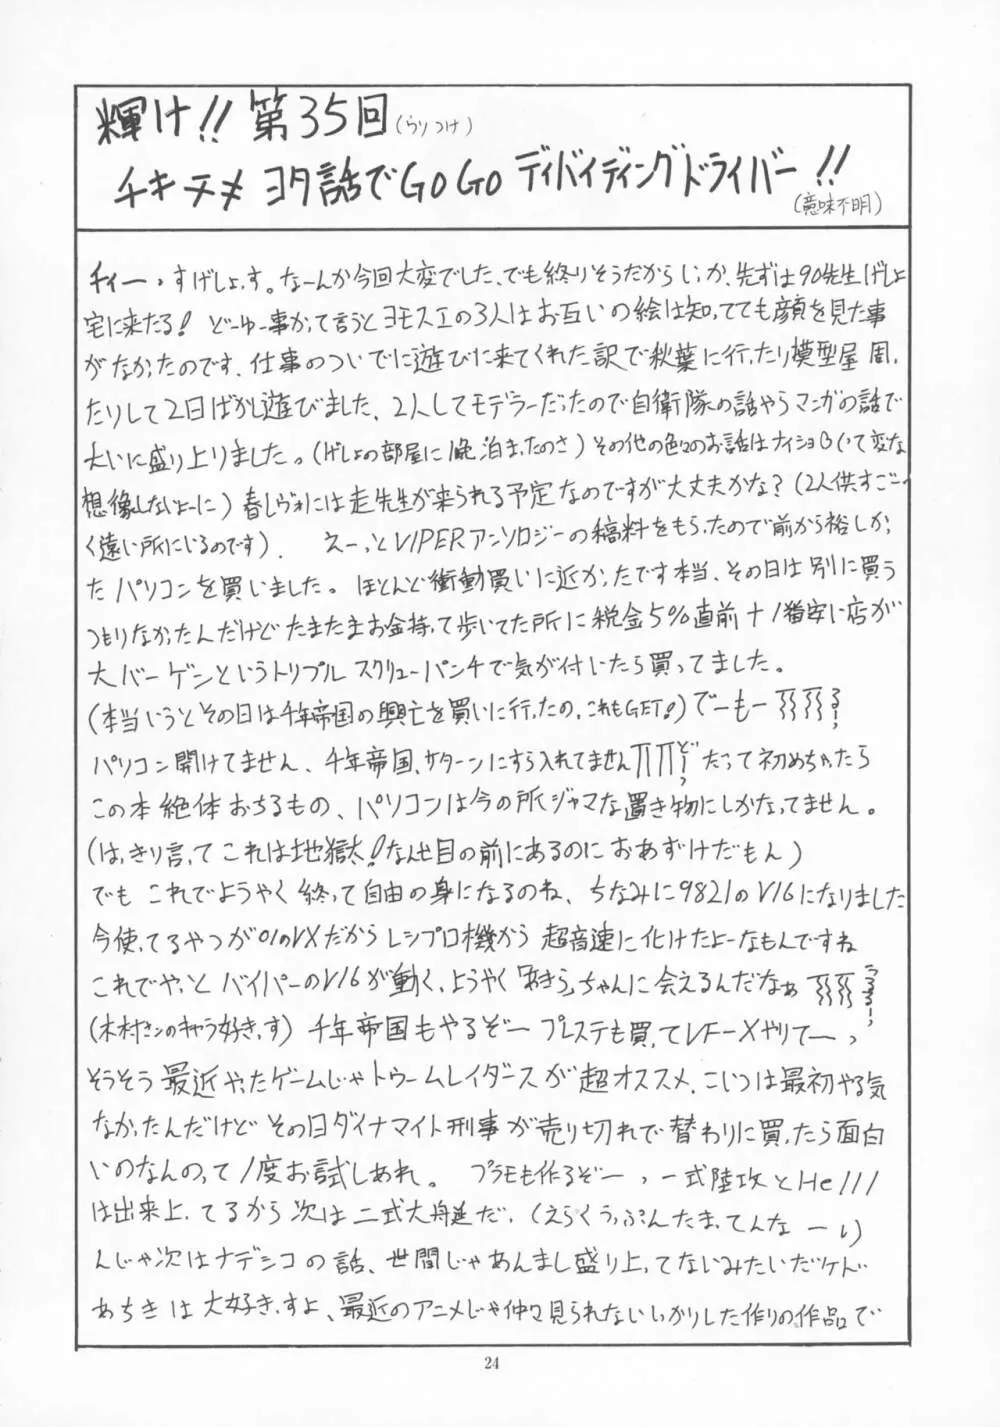 輝け!! 第35回(らりつけ)
チキチメ ヨタ話でGOGO ディバイディングドライバー!!
(意味不明)
チィーっすげしょっす。なーんか今回大変でした、でも終りそうだからしいか、先ずは90先生げしょ
宅に来たる! どーゆー事かって言うとヨモスエの3人はお互いの絵は知ってても顔を見た事
がなかったのです、仕事のついでに遊びに来てくれた訳で秋葉に行ったり模型屋周っ
たりして2日ばかし遊びました、2人してモデラーだったので自衛隊の話やらマンガの話で
大いに盛り上りました。(げしょの部屋に1晩泊まったのさ)その他の色々のお話はナイショ(いって変な
想像しないよーに)春レヴォには走先生が来られる予定なのですが大丈夫かな?(2人供すごーー
く遠い所にいるのです). えーっとVIPERアンソロジーの稿料をもらったので前から欲しかっ
たパソコンを買いました。ほとんど衝動買いに近かったです本当、その日は別に買う
つもりなかったんだけどたまたまお金持って歩いてた所に税金5%直前+1番安い店が
大バーゲンというトリプルスクリューパンチで気が付いたら買ってました。
(本当いうとその日は千年帝国の興亡を買いに行ったの,これもGET!)でーもー
パソコン開けてません、千年帝国、サターンにすら入れてません だって初めちゃったら
この本絶体おちるもの、パソコンは今の所ジャマな置き物にしかなってません。
(はっきり言ってこれは地獄だ!なんせ目の前にあるのにおあずけだもん)
でもこれでようやく終って自由の身になるのね、ちなみに9821のV16になりました
今使ってるやつが01のVXだからレシプロ機から超音速に化けたよーなもんですね
これでやっとバイパーのV16が動く、ようやく「あきら」ちゃんに会えるんだなぁ
(木村さンのキャラ好きっす)千年帝国もやるぞー プレステも買ってVF-Xやりてーっ
そうそう最近やったゲームじゃトゥームレイダースが超オススメ、こいつは最初やる気
なかったんだけどその日ダイナマイト刑事が売り切れで替わりに買ったら面白
いのなんのって1度お試しあれ。 プラモも作るぞーっ 一式陸攻とHe111
は出来上ってるから次は二式大艇だ,(えらくうっぷんたまってんなーい)
んじゃ次はナデシコの話、世間じゃあんまし盛り上ってないみたいだケド
あちきは大好きっすよ、最近のアニメじゃ仲々見られないしっかりした作りの作品で
24